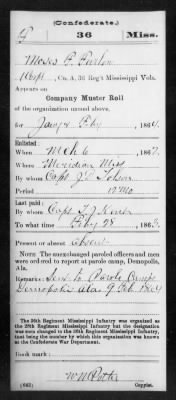 (Confederate.)
36 Miss.
Moses P.
Corpl, Co. A, 36 Reg't Mississippi Vols.
Appears on
Company Muster Roll
of the organization named above,
for Jany & Feby, 1864.
Enlisted:
When Mch 6, 1862.
Where Meridian Miss
By whom Capt J.D.
Period 12 mo
Last paid:
By whom Capt T.J.
To what time Feby 28, 1863.
Present or absent Absent
NOTE: The unexchanged paroled officers and men were ordered to report at parole camp, Demopolis, Ala.
Remarks: Sent to Parole Camp
Demopolis Ala 9 Feb 1864
The 36th Regiment Mississippi Infantry was organized as
the 38th Regiment Mississippi Infantry but the designation
was soon changed to the 36th Regiment Mississippi Infantry,
that being the number by which this organization was
known at the Confederate War Department.
Book mark:
W M Potter
(642) Copyist.